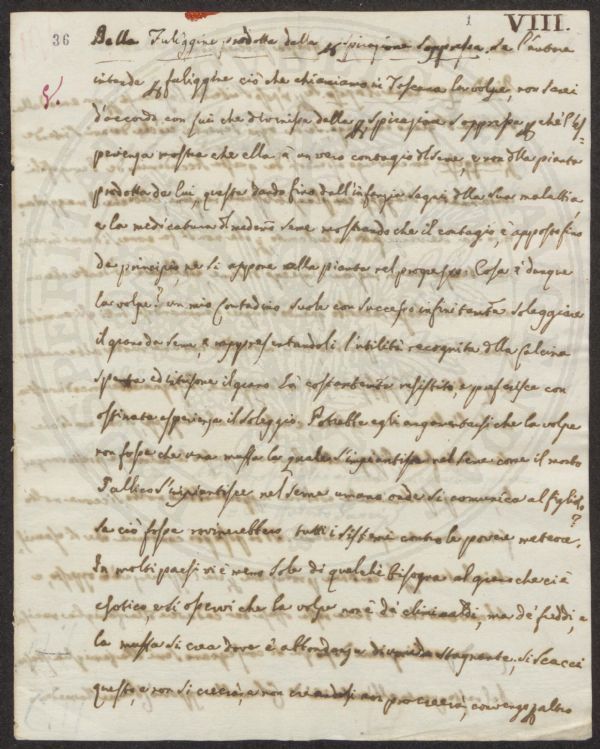 1 VIII.
36 Della Fuliggine prodotta dalla p spirazione soppressa. Se l'autore
intende p fuliggine ciò che chiamiamo in Toscana la volpe, non sarei
d'accordo con lui che divenisse dalla p spirazione soppressa p chè l'es=
perienza mostra che ella è un vero contagio del seme, e non della pianta
prodotta da lui, questa dando fino dall'infanzia segni della sua malattia
e la medicatura di seme mostrando che il contagio, è apposto fino
da principio, ne si appone alla pianta nel progresso. Cosa è dunque
la volpe? Un mio Contadino suole con successo soleggiare
il grano da seme, e rappresentandoli l'utilità recognita della Calcina
spenta ed il grano ha resistito, e preferisce con
ostinata esperienza il soleggio. Potrebbe egli che la volpe
non fosse che una muffa la quale s'impiantisse nel seme come il morbo
Gallico s'impiantisce nel seme umano onde si comunica al figlio?
Se ciò fosse rovinerebbero tutti i sistemi contro le povere meteore.
In molti paesi vi è meno sole di quel che bisogna al grano che ci è
esotico, e si osservi che la volpe non è de climi caldi, ma de freddi, e
la muffa si crea dove è abbondanza d'umido stagnante, si scacci
questo, e non si creerà, e non creandosi non procreerà, convengo p altro